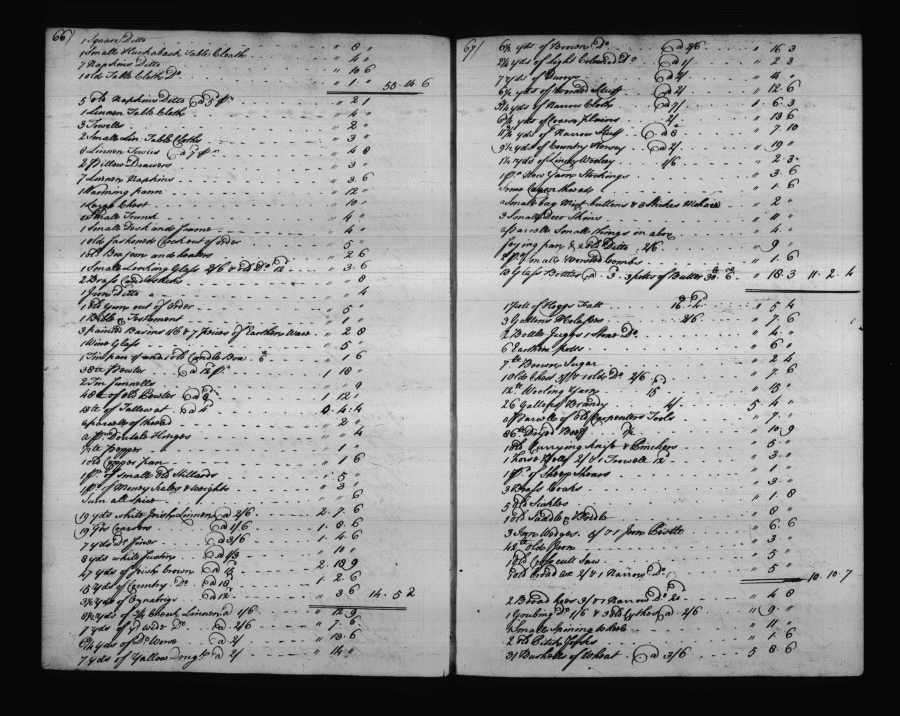 66/
1 Square Ditto " 8 "
1 Small Huckaback Table Cloath " 4 "
7 Napkins Ditto " 10 6
1 old Table Cloth Do " 1 " 53 14 6
5 old Napkins Ditto @ 5 " 2 1
1 Linnen Table Cloth " 4 "
3 Towells " 2 "
2 Small Lin. Table Cloths " 3 "
8 Linnen Towels @ 7 " 4 8
2 Pillow Drawers " 3 "
7 Linnen Napkins " 3 6
1 Warming pann " 12 "
1 Large Chest " 10 "
a Small Trunk " 4 "
1 Small Desk and frame " 4 "
1 old fashoned Clock out of order " 5 "
1 Box Iron and heaters " 2 6
1 Small Looking Glass 2/6 & old Do 12 " 3 6
2 Brass Candlesticks " " 8
1 Iron Ditto " " 4
1 old Gun out of order " 5 "
1 Bible & Testament " 1 "
3 painted Basins 1/6 & 7 peices of Earthen Ware " 2 8
1 Wine Glass " 5 "
1 Tin pan & and old Candle Box 6 " 1 6
38 lb Pewter @ 12 1 18 "
2 Tin funnells " " 9
48 lb of old Pewter @ 8 1 12 "
18 lb of Tallow at @ 4
a parcele of thread " 2 "
a pr Dovetale Hinges " " 4
pepper " 1 "
1 old Copper pan " 1 6
1 pr of small old Stillards " 5 "
1 pr of Money Scales & Weights " 3 "
Sum all Spice " " 6
19 yds white Irish Linnen @ 2/6 2 7 6
19 yds Coarser @ 1/6 1 8 6
7 yds Do finer @ 3/6 1 4 6
8 yds white fustin @ 1/3 " 10 "
47 yds of Irish Brown @ 15 2 18 9
15 yds of Country Do @ 18 1 2 6
3½ yds of Oznabrigs @ 12 " 3 6 14 5 2
8½ yds of 3/4 Check Linnen @ 1/6 " 12 9
7 yds of yd Wide Do @ 2/6 " 7 6
6¾ yds of Do Wove @ 2/ " 13 6
7 yds of Yallow @ 2/ " 14 "
67/
6½ yds of Brown Do @ 2/6 " 16 3
2¼ yds of Light Coloured Do @ 1/ " 2 3
7 yds of Duroys @ 2/ " 4 "
6¼ yds of Worsted Stuff @ 2/ " 12 6
3¾ yds of Narrow Cloth @ 7/ 1 6 3
6¾ yds of Coarse plains 2/ " 13 6
11¾ yds of Narrow Stuff @ 8 " 7 10
9½ yds of Country Kersey @ 2/ " 19 "
1½ yds of Lincy Woolsey 1/6 " 2 3
1 pr New Yarn Stockings " 3 6
Some Coarse threads " 1 6
a Small bag Vest buttons & 3 Sticks Mohair " 2 "
3 Small Deer Skins " 11 "
a parcele Small things in above " 4 "
frying pan & 2 old Ditto 2/6 " 9 "
1 pr Small Worsted Combs " 1 6
13 Glass Bottles @ 3. 3 potts of Butter 30 @ 6 " 18 3 11 2 4
1 pott of Hoggs Fatt 16 @ 4 " 5 4
3 Gallons Molasses 2/6 " 7 6
2 Bottle Juggs 1 Stone Do " 4 "
6 Earthen potts " 6 "
7 lb Brown Sugar " 2 4
1 old Chest 5/ & 1 old Do 2/6 " 7 6
12 lb Wooling Yarn 15 " 15 "
26 Gallos of Brandy 4/ 5 4 "
a Parcele of old Carpenters Tools " 7 "
86 lb Dryed Beef " 10 9
1 old Currying knife & Pinchers " 5 "
1 horse Bell 2/ & 1 Trowell 12 " 3 "
1 pr of Sheep Shears " 1 "
3 Brass Cocks " 3 "
5 old Sickles " 1 8
1 old Saddle & Bridle " 8 "
3 Iron Wedges 5/ & 1 Iron Pestle " 6 6
42 lb olde Iron " 3 "
1 old Cross cutt Saw " 5 "
1 old broad ax 2/ & 1 Narrow Do " 5 " 10 10 7
2 Broad hoes 3/ & 1 Narrow Do 20 " 4 8
1 Grubing Do 1/6 & 3 old Cythes @ 2/6 " 9 "
1 Small Spining Wheele " 11 "
2 old Pitch forks " 1 6
31 Bushells of Wheat @ 3/6 5 8 6